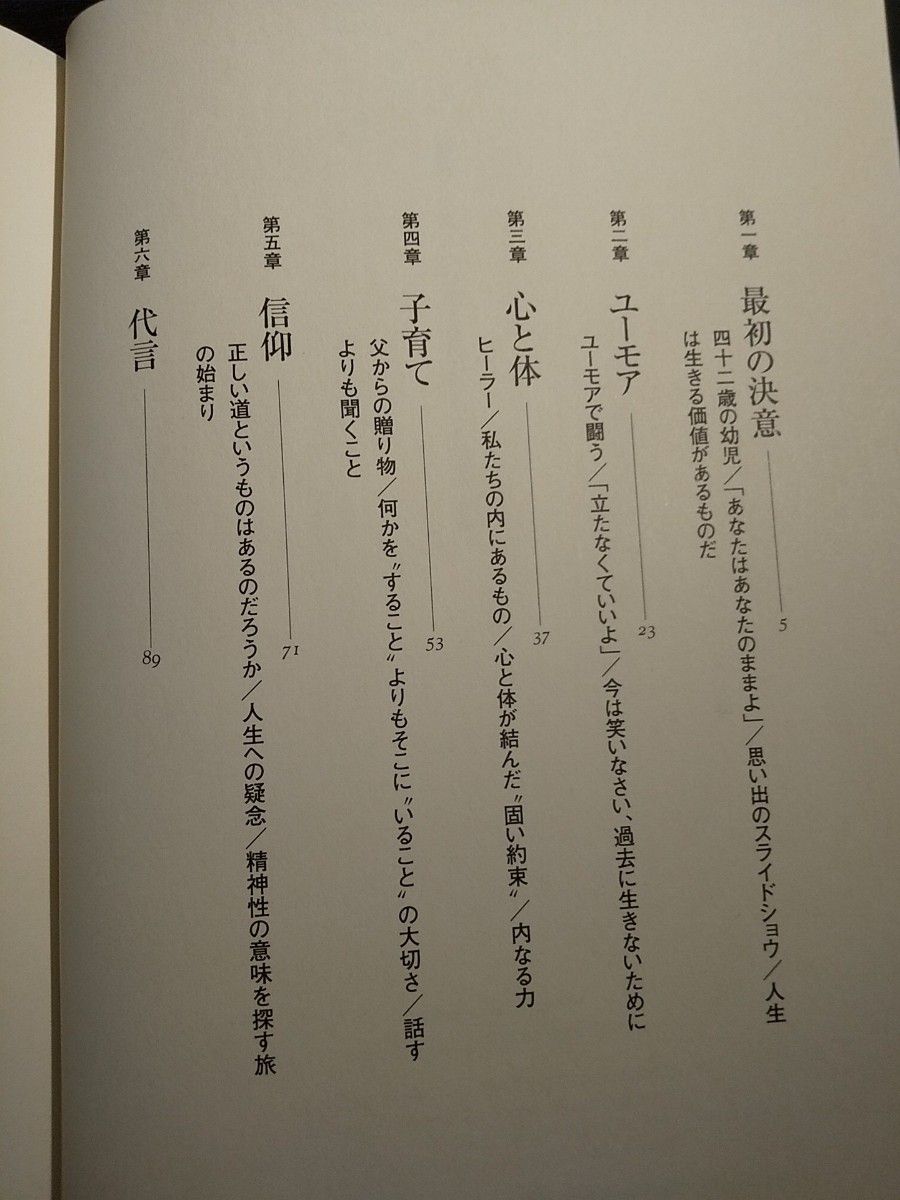 第一章 最初の決意 5
四十二歳の幼児/「あなたはあなたのままよ」/思い出のスライドショウ/人生
は生きる価値があるものだ
第二章 ユーモア 23
ユーモアで闘う/「立たなくていいよ」/今は笑いなさい、過去に生きないために
第三章 心と体 37
ヒーラー/私たちの内にあるもの/心と体が結んだ〝固い約束〟/内なる力
第四章 子育て 53
父からの贈り物/何かを〝すること〟よりもそこに〝いること〟の大切さ/話す
よりも聞くこと
第五章 信仰 71
正しい道というものはあるのだろうか/人生への疑念/精神性の意味を探す旅
の始まり
第六章 代言 89